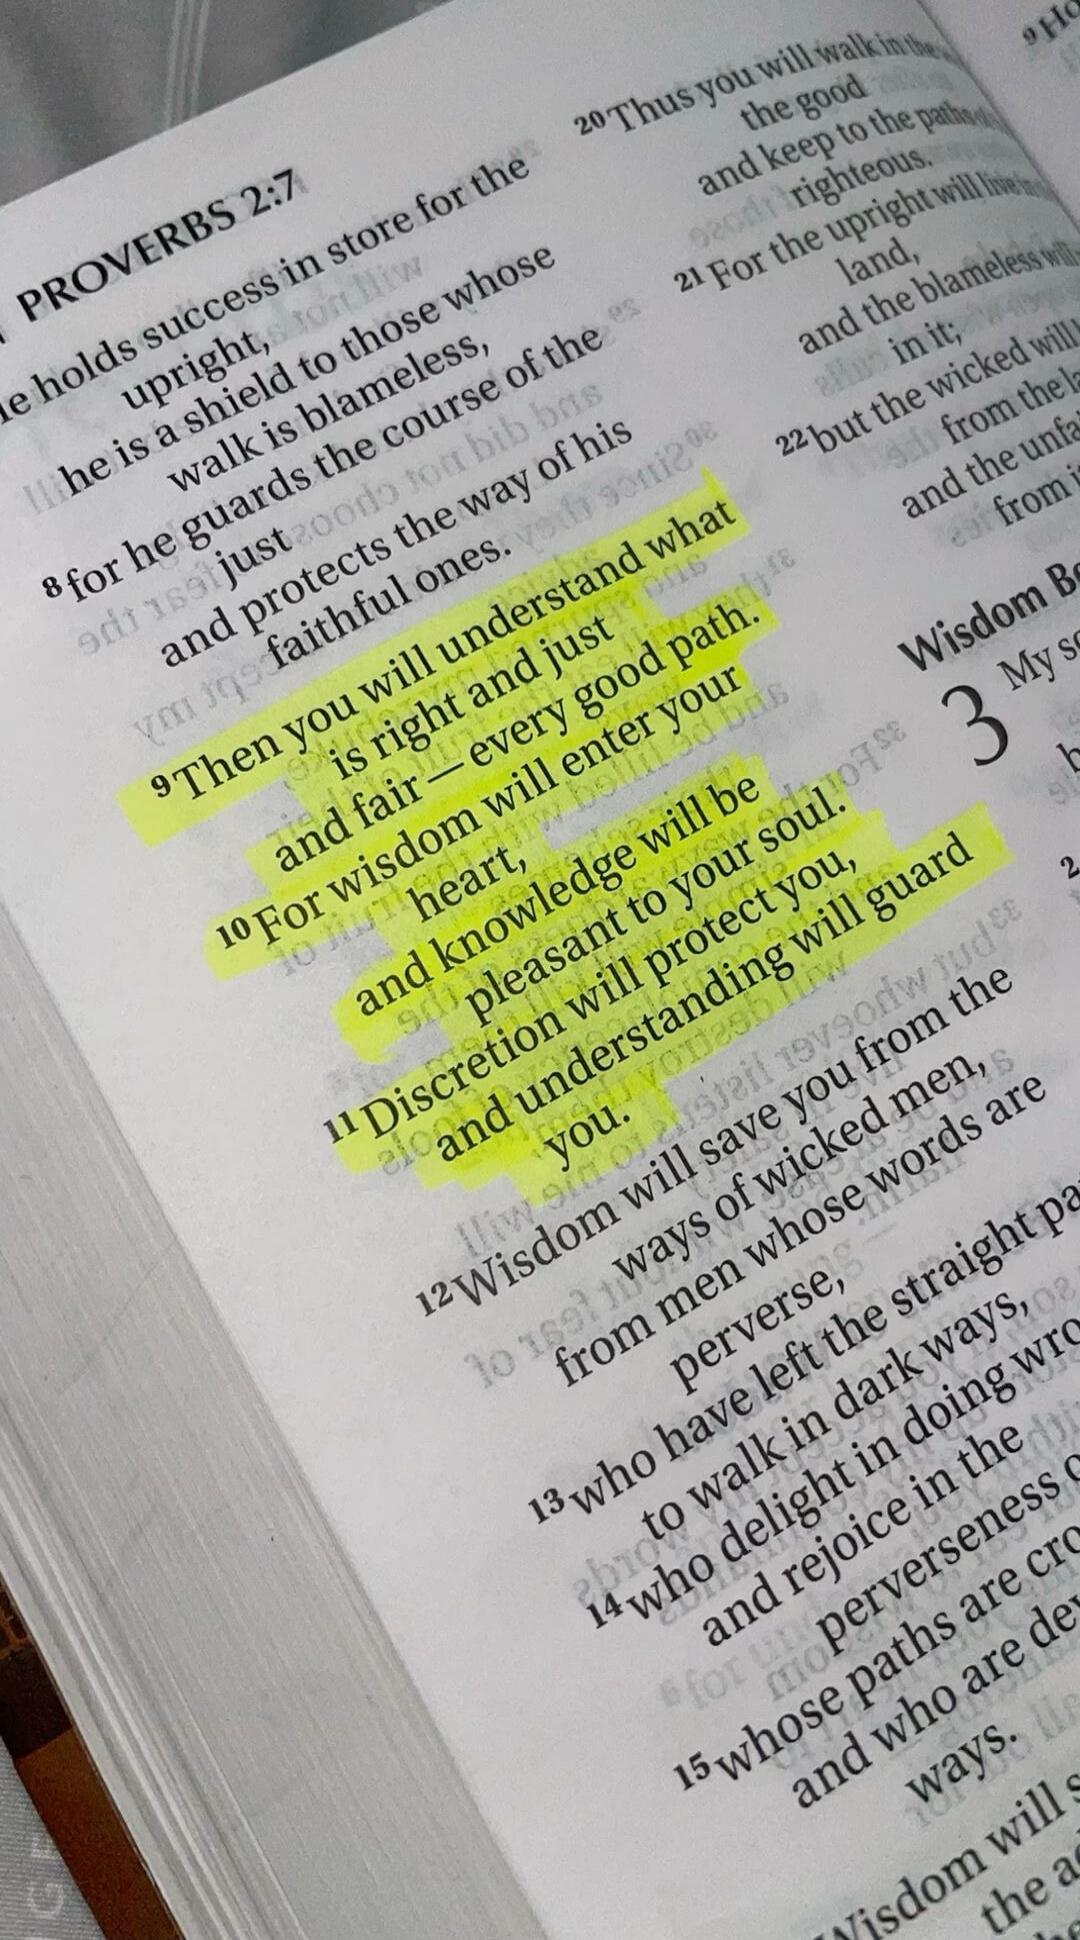 PROVERBS 2:7
holds success in store for the
upright,
he is a shield to those whose
walk is blameless,
8 for he guards the course of the
just
and protects the way of his
faithful ones.
9 Then you will understand what
is right and just
and fair—every good path.
10 For wisdom will enter your
heart,
and knowledge will be
pleasant to your soul.
11 Discretion will protect you,
and understanding will guard
you.
12 Wisdom will save you from the
ways of wicked men,
from men whose words are
perverse,
13 who have left the straight
to walk in dark ways,
14 who delight in doing
and rejoice in the
perverseness
15 whose paths are
and who are
ways.
Wisdom will
the
20 Thus you will walk in the
the good
and keep to the paths
righteous.
21 For the upright will live in
land,
and the blameless will
in it;
22 but the wicked will
from the
and the
from
Wisdom
3 My
2
9